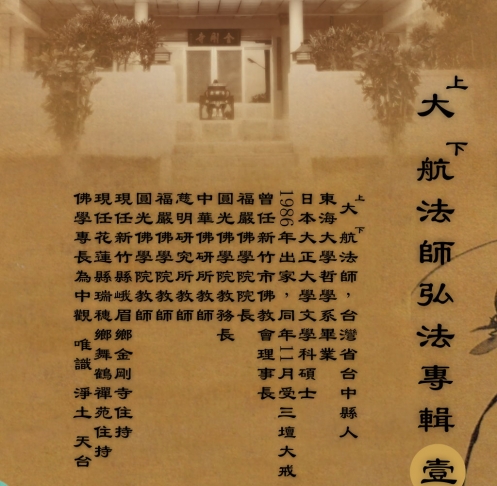 上大下航法師弘法專輯 壹
上大下航法師，台灣省台中縣人
東海大學哲學系畢業
日本大正大學文學科碩士
1986年出家，同年11月受三壇大戒
曾任新竹市佛教會理事長
福嚴佛學院院長
圓光佛學院教務長
中華佛研所教師
慈明研究所教師
福嚴佛學院教師
圓光佛學院教師
現任新竹縣峨眉鄉金剛寺住持
現任花蓮縣瑞穗鄉舞鶴禪苑住持
佛學專長為中觀 唯識 淨土 天台
金剛寺